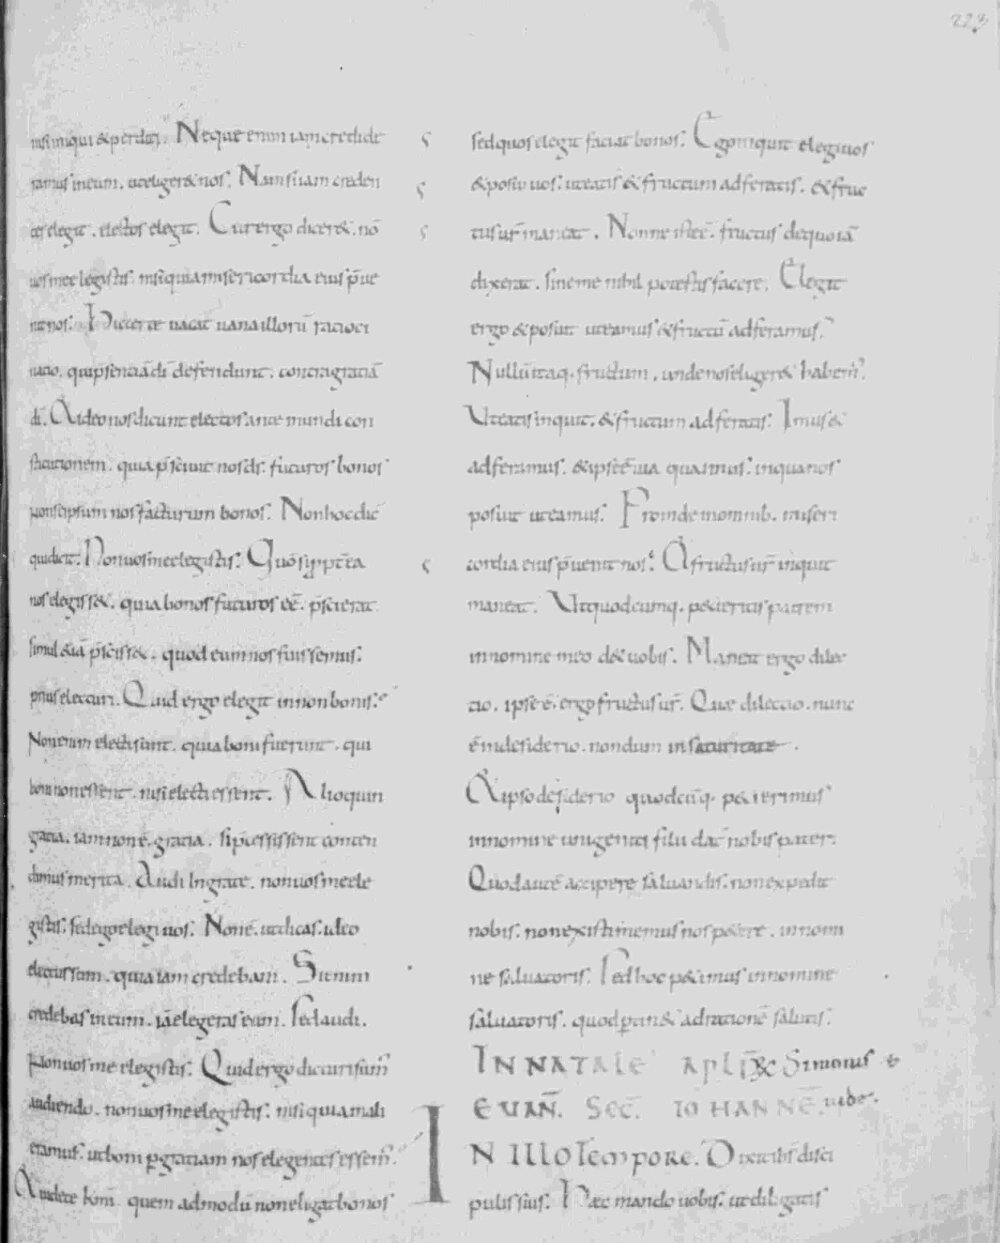 223
nisi iniqui & perditi. Neque enim iam credide
ramus in eum. ut eliger& nos. Nam si iam creden
tes elegit. electos elegit. Cur ergo dicer&. nō
uos me elegistis. nisi quia misericordia eius p̄ue
nit nos. Hic certe uacat uana illorū racioci
natio. qui p̄scienciā dī defendunt. contra gratiā
dī. & ideo nos dicunt electos ante mundi con
stitutionem. quia p̄sciuit nos dī futuros bonos
non se ipsum nos facturum bonos. Non hoc dic̄
qui dicit. Non uos me elegistis. Quō si ppt̄ea
nos elegiss&. quia bonos futuros ēē. p̄scierat
simul & iā p̄sciss&. quod eum nos fuissemus.
prius electuri. Quid ergo elegit in non bonis.
Non enim electi sunt. quia boni fuerunt. qui
boni non essent. nisi electi essent. Alioquin
gratia. iam non ē. gratia. si p̄cessissent conten
dimus merita. Audi Ingrate. non uos me ele
gistis. sed ego elegi uos. Non ē. ut dicas. ideo
electus sum. quia iam credebam. Si enim
credebas in eum. iā elegeras eum. Sed audi.
Non uos me elegistis. Quid ergo dicturi sum̄
audiendo. non uos me elegistis. nisi quia mali
eramus. ut boni p gratiam nos elegentis essem̄.
Audete bonī quem admodū non eligat bonos
sed quos elegit faciat bonos. Ego inquit elegi uos
& posui uos. ut eatis & fructum adferatis. & fruc
tus ur̄ maneat. Nonne iste ē. fructus de quo iā
dixerat. sine me nihil potestis facere. Elegit
ergo & posuit ut eamus & fructū adferamus.
Nullū itaq. fructum. unde nos eliger& habem̄.
Ut eatis inquit. & fructum adferatis. Imus &
adferamus. & ipse ē uia qua imus. in qua nos
posuit ut eamus. Proinde in omnib. miseri
cordia eius p̄uenit nos. & fructus ur̄ inquit
maneat. Ut quodcumq. p&ieritis patrem
in nomine meo d& uobis. Maneat ergo dilec
tio. ipse ē. ergo fructus ur̄. Quae dilectio. nunc
ē in desiderio. nondum in saturitate.
& ipso desiderio quodcūq. p&ierimus
in nomine unigeniti filii dat nobis pater.
Quod autē accipere saluandis. non expedit
nobis. non existimemus nos p&ere. in nomi
ne saluatoris. Sed hoc p&imus in nomine
saluatoris. quod ptin& ad rationē salutis.
IN NATALE APLŌR. Simonis &
EVAN̄. SEC̄. IOHANNĒ. iudę.
IN ILLO TEMPORE. Dixit ihs̄ disci
pulis suis. Haec mando uobis. ut diligatis